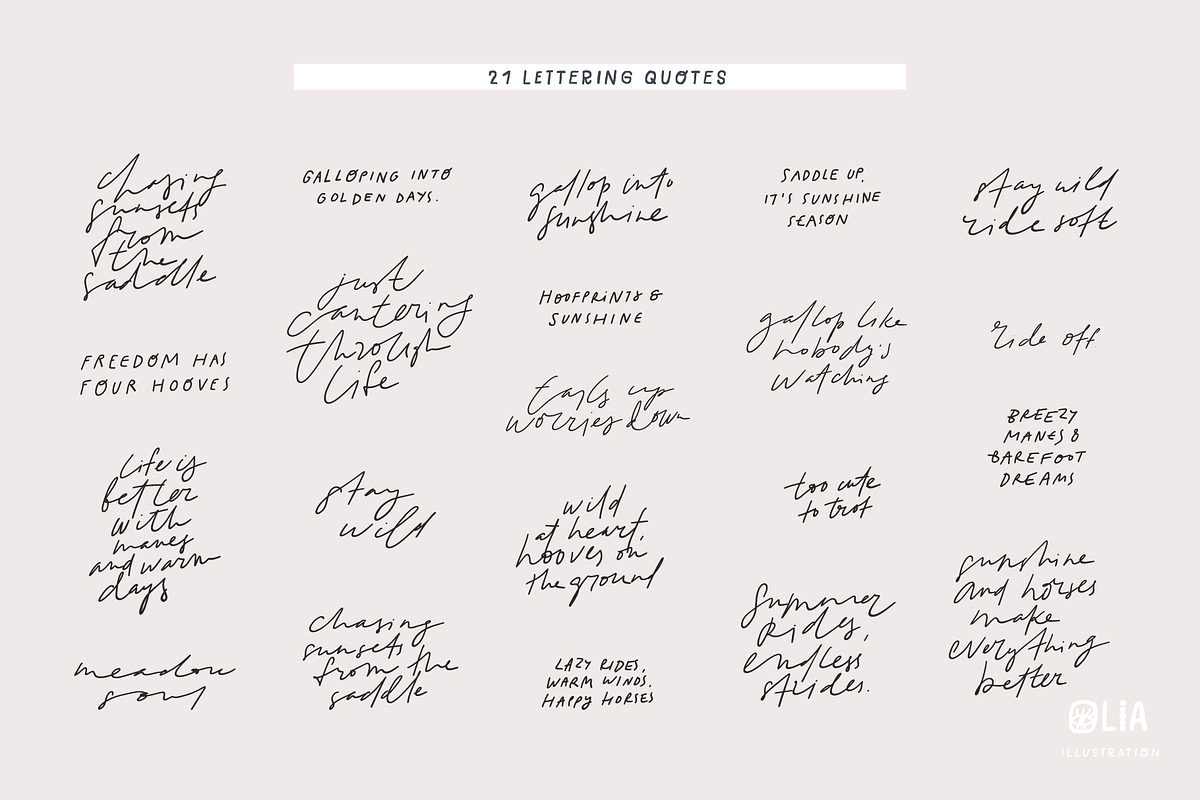 21 LETTERING QUOTES
chasing
sunsets
from
the
saddle
FREEDOM HAS
FOUR HOOVES
life is
better
with
manes
and warm
days
meadow
soul
GALLOPING INTO
GOLDEN DAYS.
just
cantering
through
life
stay
wild
chasing
sunsets
from the
saddle
gallop into
sunshine
HOOFPRINTS &
SUNSHINE
tails up
worries down
wild
at heart,
hooves on
the ground
LAZY RIDES,
WARM WINDS,
HAPPY HORSES
SADDLE UP,
IT'S SUNSHINE
SEASON
gallop like
nobody's
watching
too cute
to trot
summer
rides,
endless
strides.
stay wild
ride soft
ride off
BREEZY
MANES &
BAREFOOT
DREAMS
sunshine
and horses
make
everything
better
OLIA
ILLUSTRATION